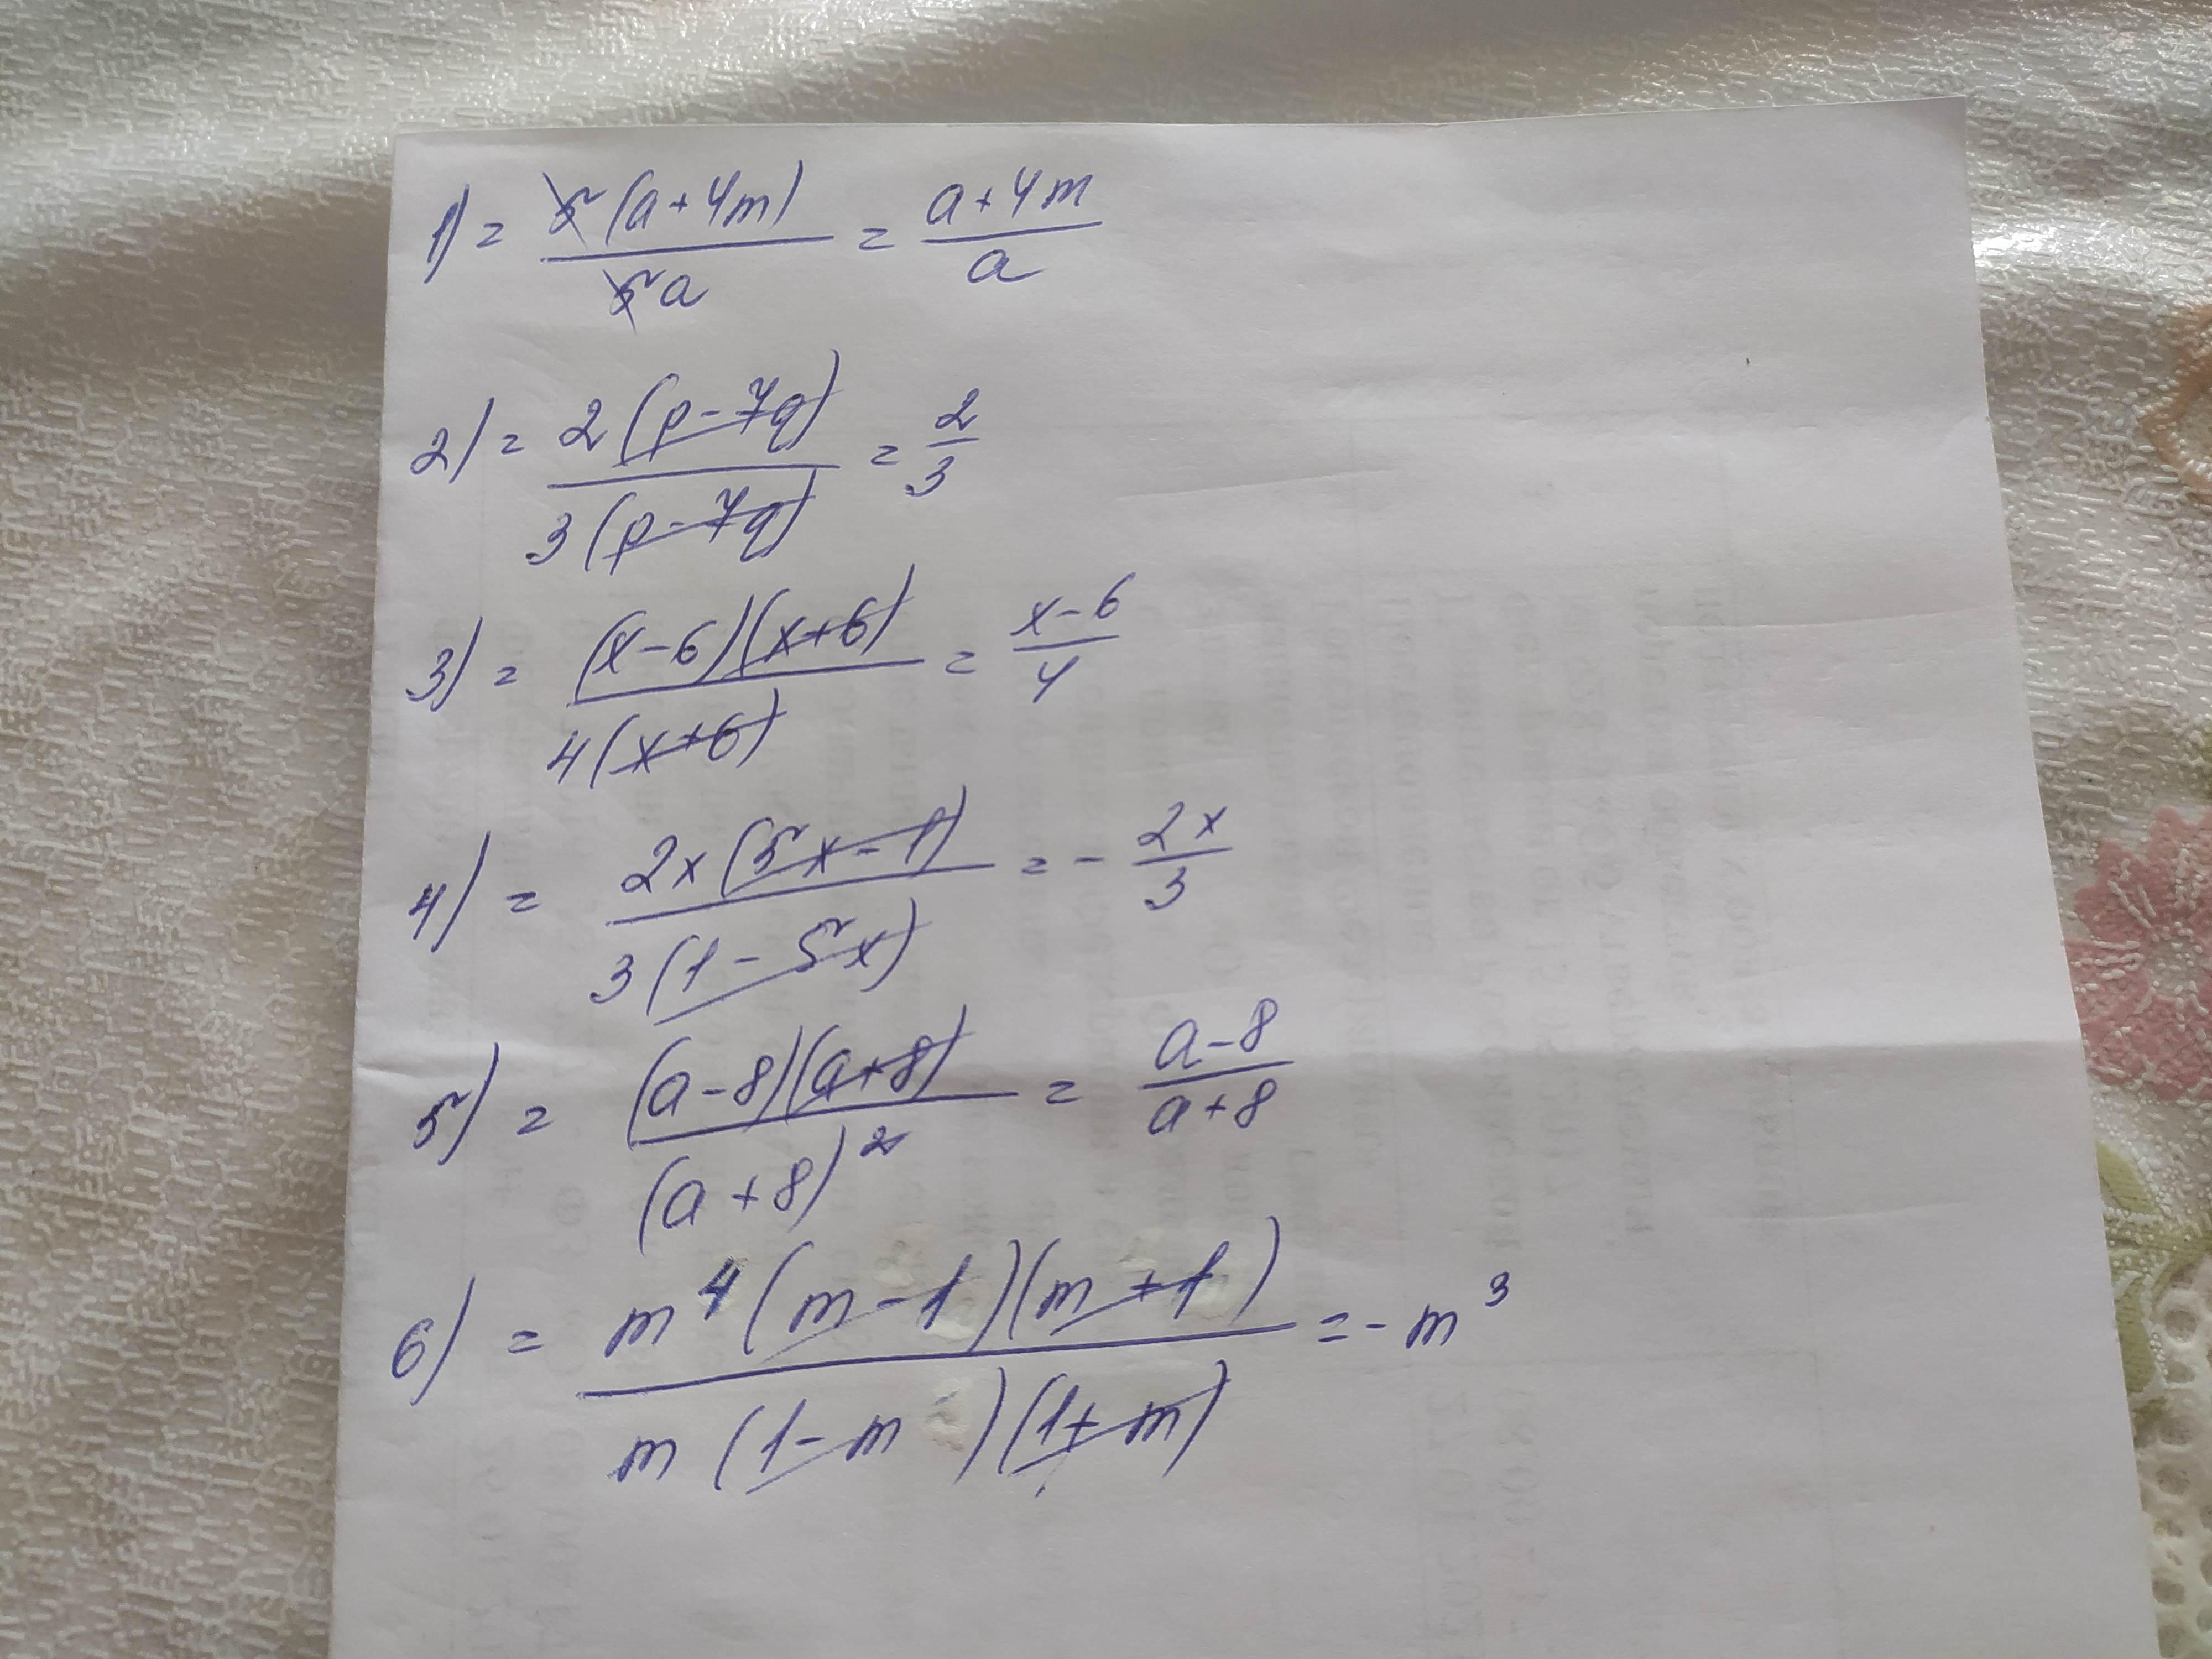 1) = 5(a+4m)/5a = a+4m/a
2) = 2(p-7q)/3(p-7q) = 2/3
3) = (x-6)(x+6)/4(x+6) = x-6/4
4) = 2x(5x-1)/3(1-5x) = - 2x/3
5) = (a-8)(a+8)/(a+8)² = a-8/a+8
6) = m⁴(m-1)(m+1)/m(1-m)(1+m) = - m³